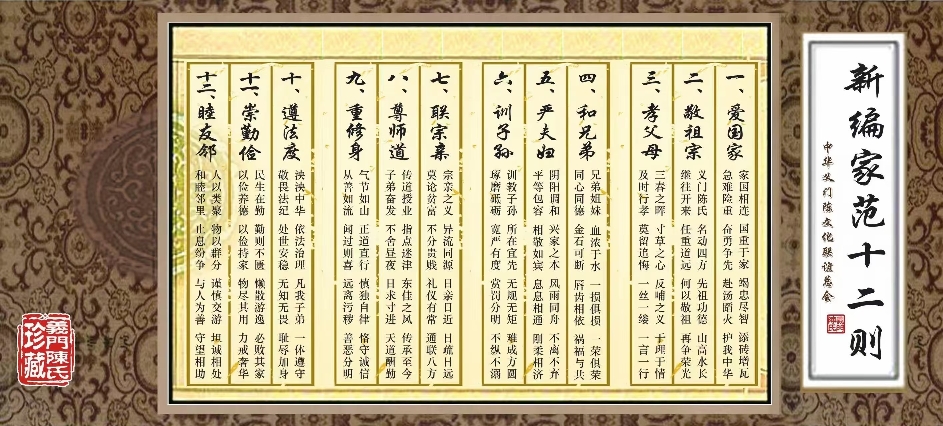 新编家范十二则
中华义门陈文化联谊总会
一、爱国家
家国相连 国重于家 竭忠尽智 添砖增瓦
急难险重 奋勇争先 赴汤蹈火 护我中华
二、敬祖宗
义门陈氏 名动四方 先祖功德 山高水长
继往开来 任重道远 何以敬祖 再争荣光
三、孝父母
三春之晖 寸草之心 反哺之义 于理于情
及时行孝 莫留追悔 一丝一缕 一言一行
四、和兄弟
兄弟姐妹 血浓于水 一损俱损 一荣俱荣
同心同德 金石可断 唇齿相依 祸福与共
五、严夫妇
阴阳调和 兴家之本 风雨同舟 不离不弃
平等包容 相敬如宾 息息相通 刚柔相济
六、训子孙
训教子孙 所在宜先 无规无矩 难成方圆
琢磨砥砺 宽严有度 赏罚分明 不纵不溺
七、联宗亲
宗亲之义 异流同源 日亲日近 日疏日远
莫论贫富 不分贵贱 礼仪有常 通联八方
八、尊师道
传道授业 指点迷津 东佳之风 传承至今
子弟奋发 不舍昼夜 日求寸进 天道酬勤
九、重修身
气节如山 正道直行 慎独自律 恪守诚信
从善如流 闻过则喜 远离污秽 善恶分明
十、遵法度
泱泱中华 依法治理 凡我子弟 一体遵守
敬畏法纪 处世安稳 无知无畏 耻辱加身
十一、崇勤俭
民生在勤 勤则不匮 懒散游逸 必败其家
以俭养德 以俭持家 物尽其用 力戒奢华
十二、睦友邻
人以类聚 物以群分 谨慎交游 坦诚相处
和睦邻里 止息纷争 与人为善 守望相助
義門陳氏
珍藏